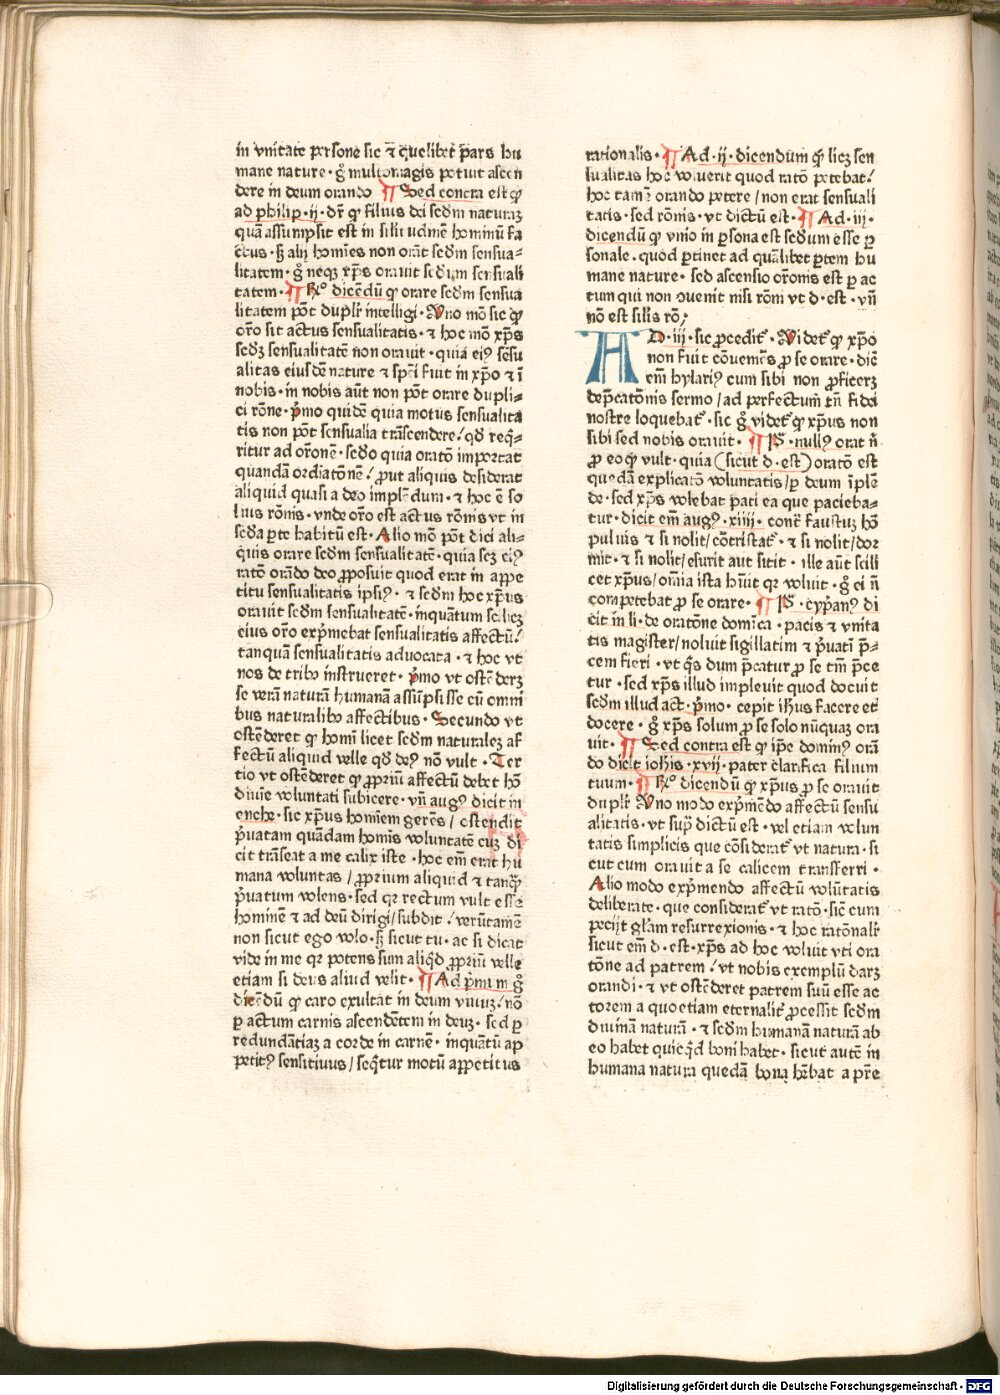 in vnitate persone sic ⁊ q̄uelibet p̄ars hu
mane nature · g̊ multomagis potuit ascen
dere in deum orando ¶ Sed contra est ꝙ
ad philip · ij · dr̄ ꝙ filius dei scd̄m naturaꝫ
quā assumpsit est in silit udinē hominū fa
ctus · sꝫ alij homīes non orāt scd̄m sensua⸗
litatem · g̊ neqꝫ xp̄s orauit scd̄um sensuali
tatem · ¶ Rͦ dicēdū ꝙ orare scd̄m sensua
litatem pōt duplr̄ intelligi · Vno mō sic ꝙ
orō sit actus sensualitatis · ⁊ hoc mō xp̄s
scd̄ꝫ sensualitatē non orauit · quia eiꝰ sēsu
alitas eiusdē nature ⁊ spēi fuit in xp̄o ⁊ ī
nobis · in nobis aūt non pōt orare dupli⸗
ci rōne · p̄mo quidē quia motus sensualita
tis non pōt sensualia trāscendere / qd̄ req̄⸗
ritur ad orōnē · scd̄o quia oratō importat
quandā ordiatōnē / ꝓut aliquis desiderat
aliquid quasi a deo implēdum · ⁊ hoc ē so
lius rōnis · vnde orō est actus rōnis vt in
scd̄a ꝑte habitū est · Alio mō pōt dici ali⸗
q̄uis orare scd̄m sensualitatē · quia scꝫ eiꝰ
ratō orādo deo ꝓposuit quod erat in appe
titu sensualitatis ipsiꝰ · ⁊ scd̄m hoc xp̄us
orauit scd̄m sensualitatē · inquātum scilicꝫ
eius orō exp̄mebat sensualitatis affectū /
tanquā sensualitatis aduocata · ⁊ hoc vt
nos de tribꝰ instrueret · p̄mo vt ostēderꝫ
se verā naturā humanā assūpsisse cū omni
bus naturalibꝰ affectibus · Secundo vt
ostēderet ꝙ homī licet scd̄m naturaleꝫ af
fectū aliquid velle qd̄ deꝰ nō vult · Ter
tio vt ostēderet ꝙ ꝓpriū affectū debet hō
diuīe voluntati subicere · vn̄ augꝰ dicit in
enche · sic xp̄us homīem gerēs / ostendit
p̄uatam quādam homīs voluntatē cuꝫ di
cit trāseat a me calix iste · hoc em̄ erat hu
mana voluntas / ꝓprium aliquid ⁊ tanꝙ̄
p̄uatum volens · sed qꝛ rectum vult esse
hominē ⁊ ad deū dirigi / subdit / verūtamē
non sicut ego volo · sꝫ sicut tu · ac si dicat
vide in me qꝛ potens sum aliq̄d ꝓpriū velle
etiam si deus aliud velit · ¶ Ad p̄mum g̊
dicēdū ꝙ caro exultat in deum viuuꝫ / nō
ꝑ actum carnis ascendētem in deuꝫ · sed ꝑ
redundātiaꝫ a corde in carnē · inquātū ap
petitꝰ sensitiuus / seq̄tur motū appetitus
rationalis · ¶ Ad · ij · dicendum ꝙ licꝫ sen
sualitas hoc voluerit quod ratō petebat /
hoc tamē orando petere / non erat sensuali
tatis · sed rōnis · vt dictū est · ¶ Ad · iij ·
dicendū ꝙ vnio in ꝑsona est scd̄um esse ꝑ
sonale · quod ꝑtinet ad quālibet ꝑtem hu
mane nature · sed ascensio orōnis est ꝑ ac
tum qui non ꝯuenit nisi rōni vt d · est · vn̄
nō est silis rō /
AD · iij · sic ꝓceditᷣ · Videtᷣ ꝙ xp̄o
non fuit cōueniēs ꝓ se orare · dic̄
em̄ hylariꝰ cum sibi non ꝓficerꝫ
dep̄catōnis sermo / ad perfectum tn̄ fidei
nostre loquebatᷣ · sic g̊ videtᷣ ꝙ xp̄us non
sibi sed nobis orauit · ¶ Pͫ · nullꝰ orat n̄
ꝓ eo ꝙ vult · quia ( sicut d · est ) oratō est
quedā explicatō voluntatis / ꝑ deum īplē
de · sed xp̄s volebat pati ea que pacieba⸗
tur · dicit em̄ augꝰ · xiiij · contᷓ faustuꝫ hō
puluis ⁊ si nolit / cōtristatᷣ · ⁊ si nolit / dor
mit · ⁊ si nolit / esurit aut sitit · ille aūt scili
cet xp̄us / omīa ista hūit qꝛ voluit · g̊ ei n̄
competebat ꝓ se orare · ¶ Pͫ · cyp̄anꝰ di
cit in li · de oratōne domīca · pacis ⁊ vnita
tis magister / noluit sigillatim ⁊ p̄uatī p̄⸗
cem fieri · vt q̄s dum p̄catur ꝓ se tm̄ p̄ce
tur · sed xp̄s illud impleuit quod docuit
scd̄m illud act · p̄mo · cepit ih̄us facere et
docere · g̊ xp̄s solum ꝓ se solo nūquaꝫ ora
uit · ¶ Sed contra est ꝙ ip̄e dominꝰ orā
do dicit ioh̄is · xvij · pater clarifica filium
tuum · ¶ Rͦ dicendū ꝙ xp̄us ꝓ se orauit
duplr̄ Vno modo exp̄mēdo affectū sensu
alitatis · vt supͣ dictū est · vel etiam volun
tatis simplicis que cōsideratᷣ vt natura · si
cut cum orauit a se calicem transferri ·
Alio modo exp̄mendo affectū volūtatis
deliberate · que consideratᷣ vt ratō · sic̄ cum
pecijt gl̄am resurrexionis · ⁊ hoc ratōnalr̄
sicut em̄ d · est · xp̄s ad hoc voluit vti ora
tōne ad patrem / vt nobis exemplū darꝫ
orandi · ⁊ vt ostēderet patrem suū esse ac
torem a quo etiam eternalitᷣ ꝓcessit scd̄m
diuinā naturā · ⁊ scd̄m humanā naturā ab
eo habet quicq̄d boni habet · sicut autē in
humana natura quedā bona hēbat a pr̄e
Digitalisierung gefördert durch die Deutsche Forschungsgemeinschaft - DFG